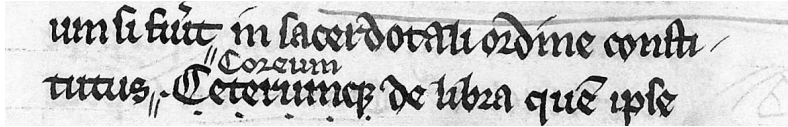 um si fuīt in sacerdotali ordine consti-
Coreum
tutus. Ceterumqꝫ de libra quē ipse